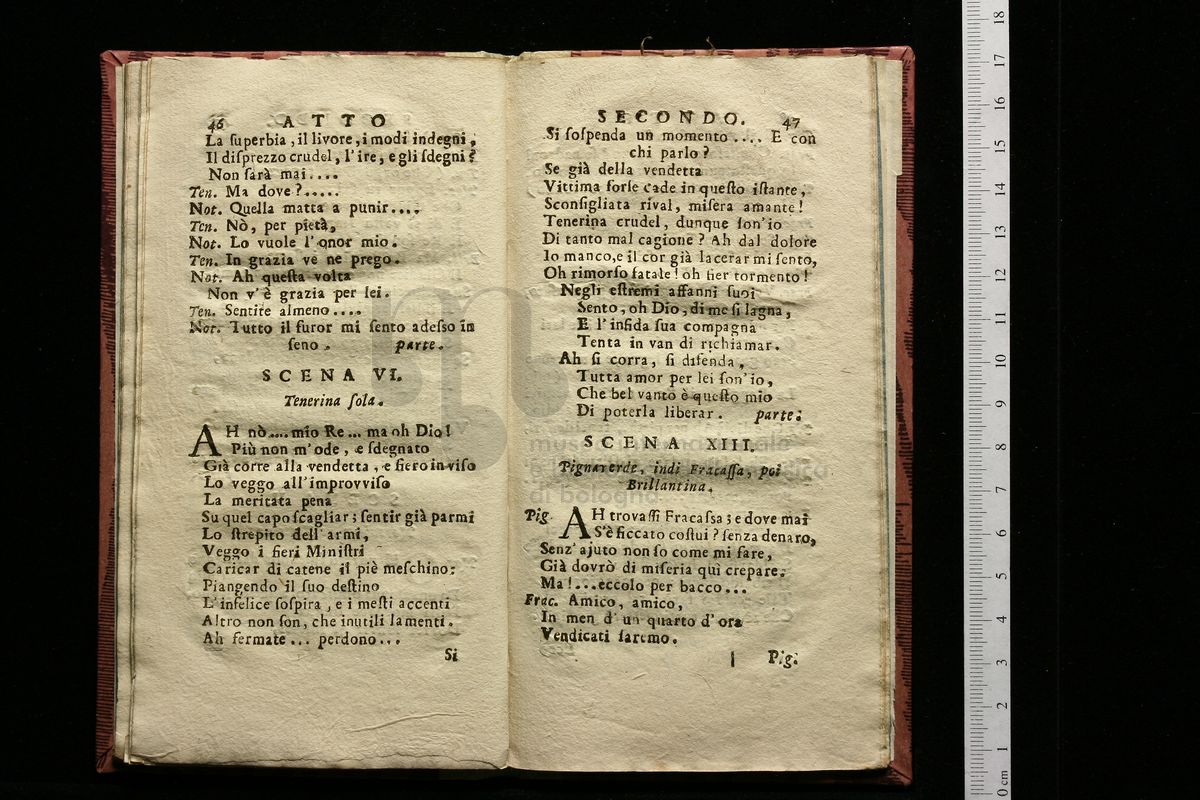 46 ATTO
La ſuperbia, il livore, i modi indegni,
Il diſprezzo crudel, l'ire, e gli ſdegni?
Non ſarà mai....
Ten. Ma dove?.....
Not. Quella matta a punir....
Ten. Nò, per pietà,
Not. Lo vuole l'onor mio.
Ten. In grazia ve ne prego.
Not. Ah queſta volta
Non v'è grazia per lei.
Ten. Sentite almeno....
Not. Tutto il furor mi ſento adeſso in
ſeno. parte.
SCENA VI.
Tenerina ſola.
AH nò.... mio Re... ma oh Dio!
Più non m'ode, e ſdegnato
Già corre alla vendetta, e fiero inviſo
Lo veggo all'improvviſo
La meritata pena
Su quel capo ſcagliar; ſentir già parmi
Lo ſtrepito dell'armi,
Veggo i fieri Miniſtri
Caricar di catene il piè meſchino:
Piangendo il ſuo deſtino
L'infelice ſoſpira, e i meſti accenti
Altro non ſon, che inutili lamenti.
Ah fermate... perdono...
Si
SECONDO. 47
Si ſoſpenda un momento.... E con
chi parlo?
Se già della vendetta
Vittima forſe cade in queſto iſtante,
Sconſigliata rival, miſera amante!
Tenerina crudel, dunque ſon'io
Di tanto mal cagione? Ah dal dolore
Io manco, e il cor già lacerar mi ſento,
Oh rimorſo fatale! oh fier tormento!
Negli eſtremi affanni ſuoi
Sento, oh Dio, di me ſi lagna,
E l'infida ſua compagna
Tenta in van di richiamar.
Ah ſi corra, ſi difenda,
Tutta amor per lei ſon'io,
Che bel vanto è queſto mio
Di poterla liberar. parte:
SCENA XIII.
Pignaverde, indi Fracaſſa, poi
Brillantina.
Pig. AH trovaſſi Fracaſsa; e dove mai
S'è ficcato coſtui? ſenza denaro,
Senz'ajuto non ſo come mi fare,
Già dovrò di miſeria quì crepare.
Ma!...eccolo per bacco...
Frac. Amico, amico,
In men d'un quarto d'ora
Vendicati ſaremo.
Pig.
museo internazionale
e biblioteca della musica
di bologna
0 cm 1 2 3 4 5 6 7 8 9 10 11 12 13 14 15 16 17 18